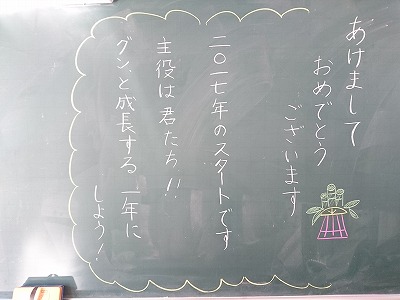 あけまして
おめでとう
ございます
二〇一七年のスタートです
主役は君たち!!
グンと成長する一年に
しよう!